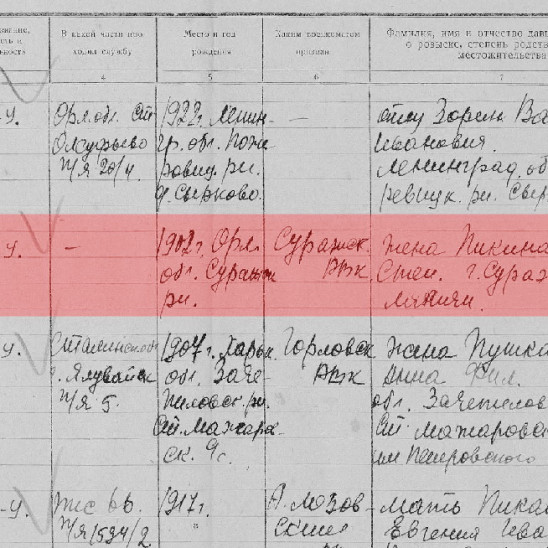 В какой части про-
ходил службу
Место и год
рождения
Каким военкоматом
призван
Фамилия, имя и отчество
о розыске, степень
местожительство
4
5
6
7
-у.
Орл. обл. ст.
1922 г. Ленин-
гр. обл.
рович. рн.
д. Сырково.
п/я 20/4
—
отцу Зорин Ва
Иванович.
Ленинград. об
ревицк. рн. Сыр
у.
—
1902 г. Орл.
обл. Суражск
рн.
Суражск.
РВК
жена Пикина
Степ. г. Сураж
у.
Сталинская
п/я 5.
1907 г. Харьк
обл. Заче-
пиловск. рн.
ст. Мажара-
ск. 9с.
Горловск
РВК
жена Пушка
Анна Фил.
обл. Зачепилов
ст. Мажаровс
им Петровского
-у.
п/я 1594/2
1917 г.
мать Пика
Евгения Ива